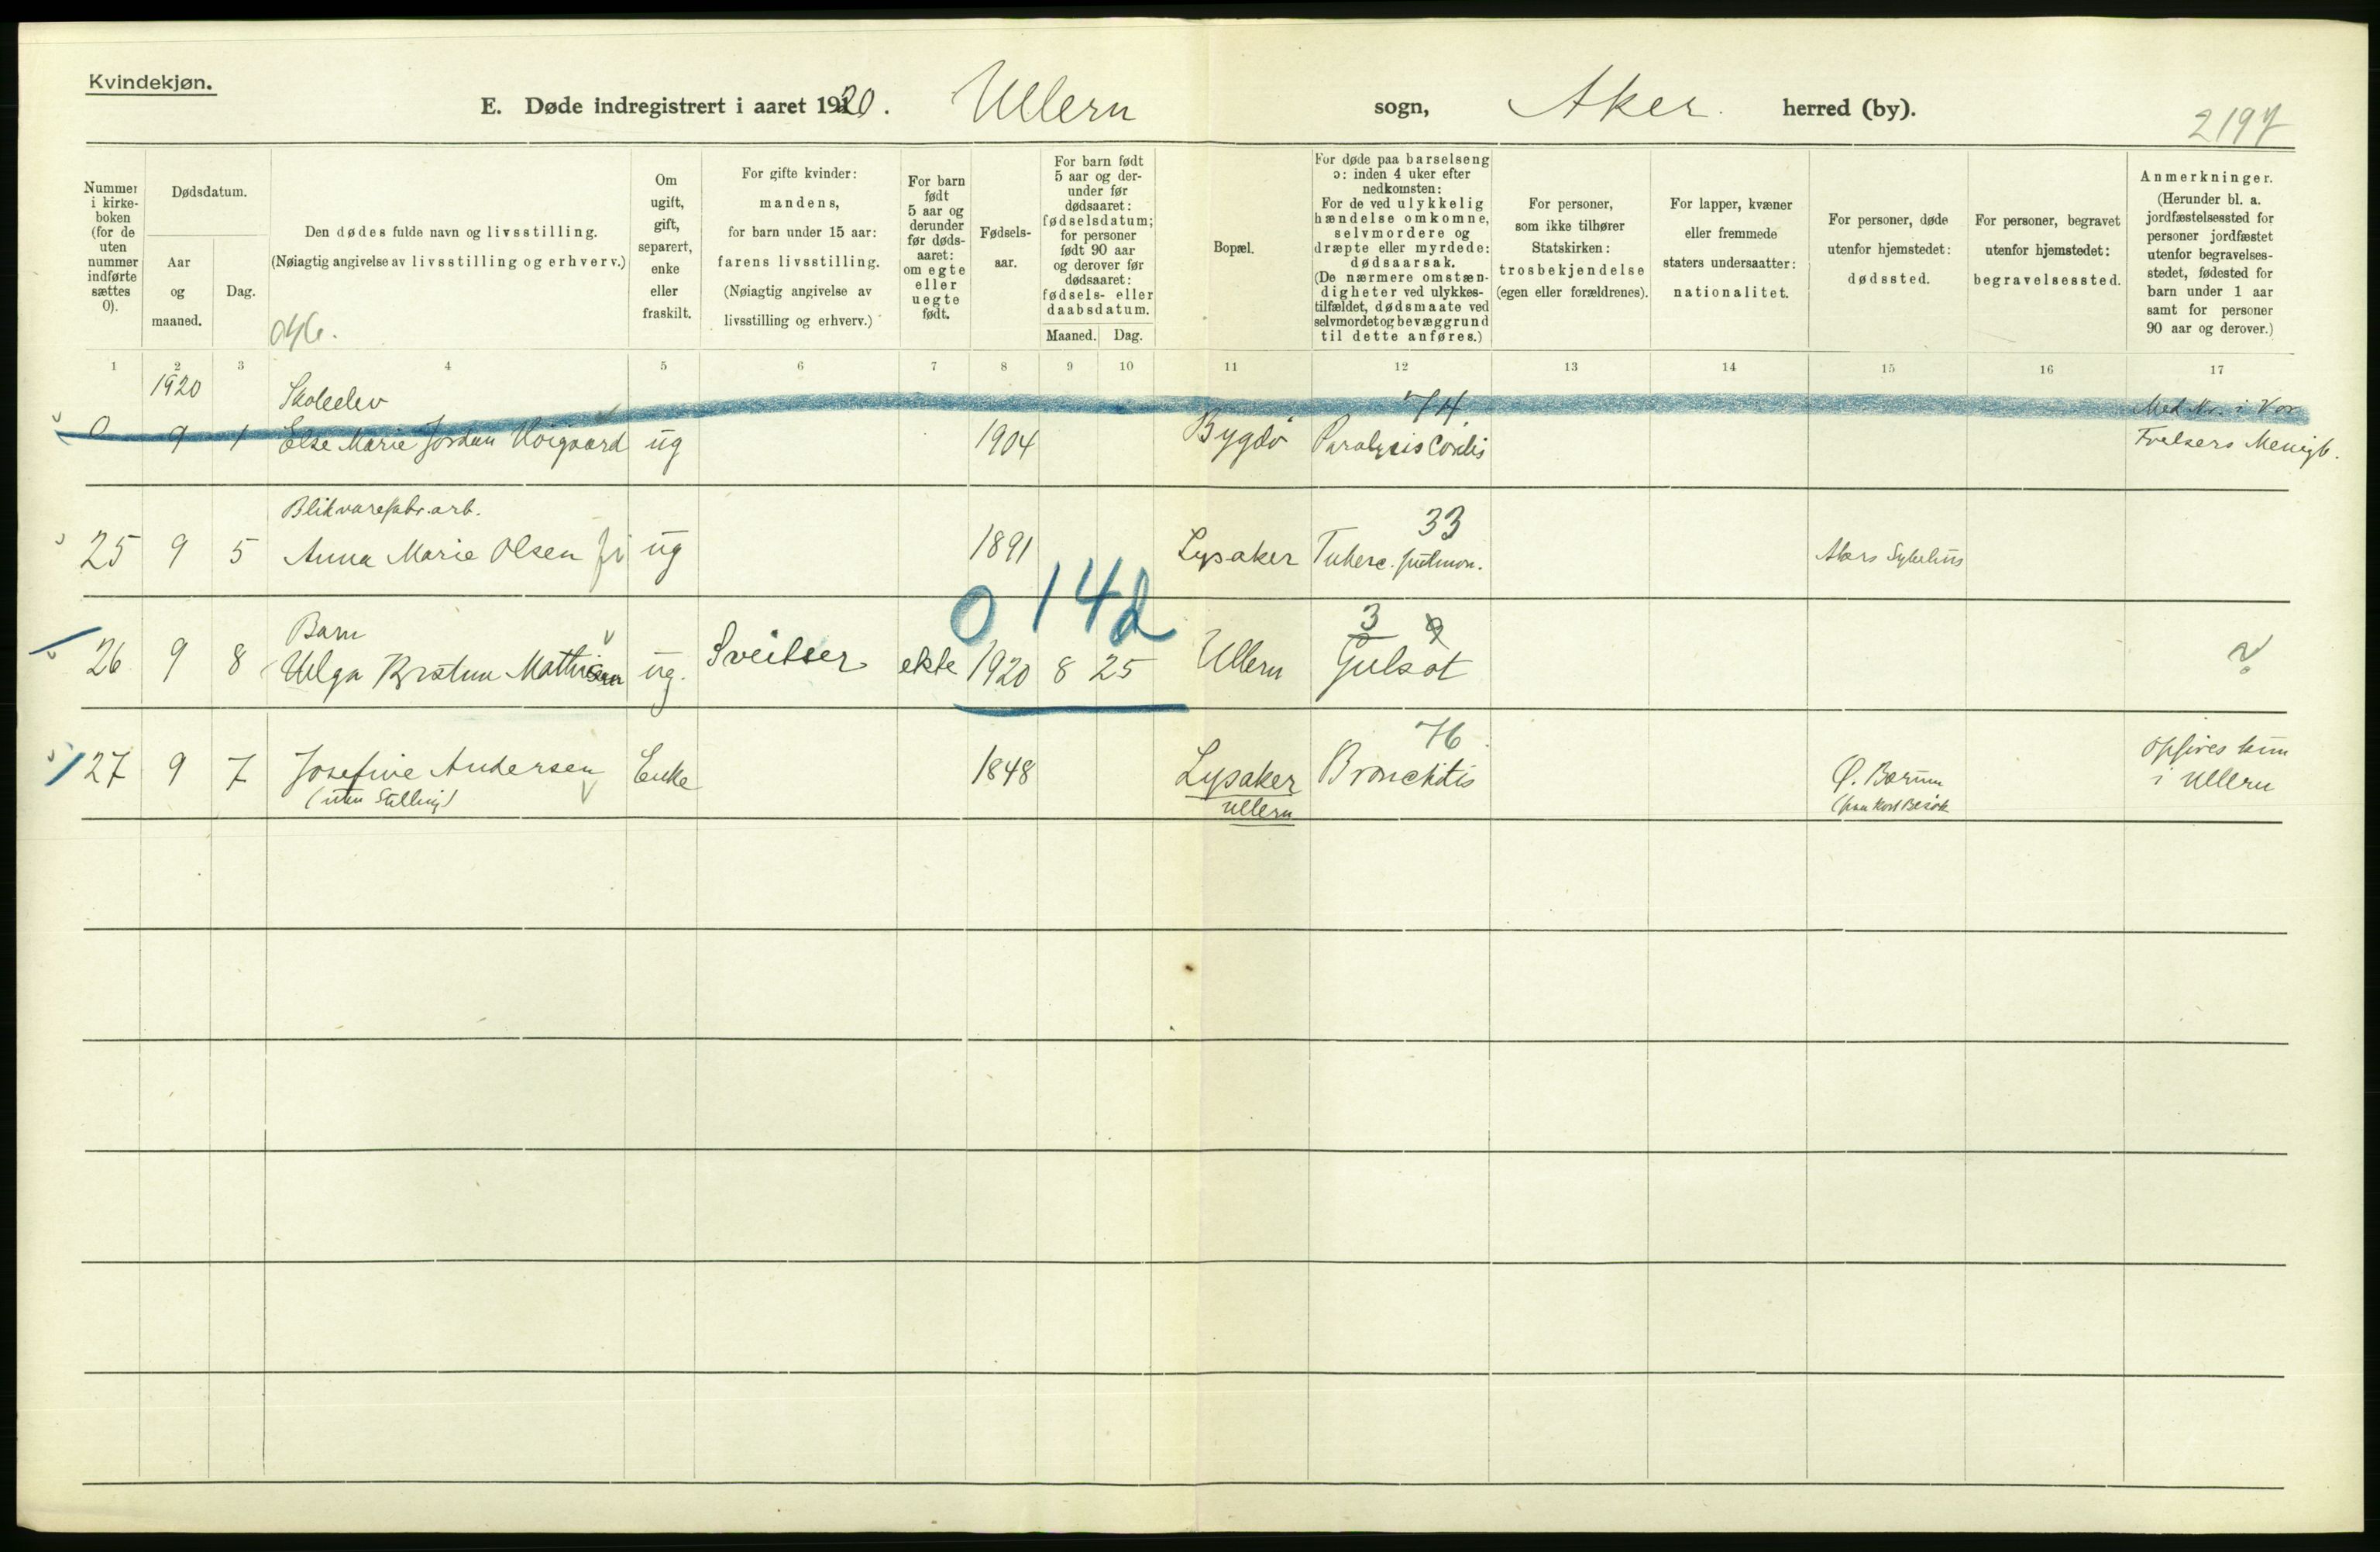 Kvindekjøn.
E. Døde indregistrert i aaret 1920. Ullern sogn, Aker. herred (by).
2197
Nummer i kirke-boken (for de uten nummer indførte sættes 0).
Dødsdatum.
Aar og maaned.
Dag.
Den dødes fulde navn og livsstilling.
(Nøiagtig angivelse av livsstilling og erhverv.)
Om ugift, gift, separert, enke eller fraskilt.
For gifte kvinder: mandens, for barn under 15 aar: farens livsstilling. (Nøiagtig angivelse av livsstilling og erhverv.)
For barn født 5 aar og derunder før døds-aaret: om egte eller uegte født.
Fødsels-aar.
For barn født 5 aar og der-under før dødsaaret: fødselsdatum; for personer født 90 aar og derover før dødsaaret: fødsels- eller daabsdatum.
Maaned. Dag.
Bopæl.
For døde paa barselseng ɔ: inden 4 uker efter nedkomsten: For de ved ulykkelig hændelse omkomne, selvmordere og dræpte eller myrdede: dødsaarsak. (De nærmere omstæn-digheter ved ulykkes-tilfældet, dødsmaate ved selvmordet og bevæggrund til dette anføres.)
For personer, som ikke tilhører Statskirken: trosbekjendelse (egen eller forældrenes).
For lapper, kvæner eller fremmede staters undersaatter: nationalitet.
For personer, døde utenfor hjemstedet: dødssted.
For personer, begravet utenfor hjemstedet: begravelsessted.
Anmerkninger. (Herunder bl. a. jordfæstelsessted for personer jordfæstet utenfor begravelses-stedet, fødested for barn under 1 aar samt for personer 90 aar og derover.)
1 2 3 4 5 6 7 8 9 10 11 12 13 14 15 16 17
1920 Skoleelev 74 Med Nr. i Vor
0 9 1 Else Marie Jordan Höigaard ug 1904 Bygdö Paralysis Cordis Frelsers Menigh.
Blikvarefabr.arb. 33
25 9 5 Anna Marie Olsen ug 1891 Lysaker Tuberc. pulmon. Akers Sykehus
0 14d
Barn 3
26 9 8 Helga Kristine Mathisen ug. Sveitser ekte 1920 8 25 Ullern Gulsot ?
76
27 9 7 Josefine Andersen Enke 1848 Lysaker Bronchitis Ø. Bærum opføres kun
(uten Stilling) Ullern (paa kort Besøk i Ullern